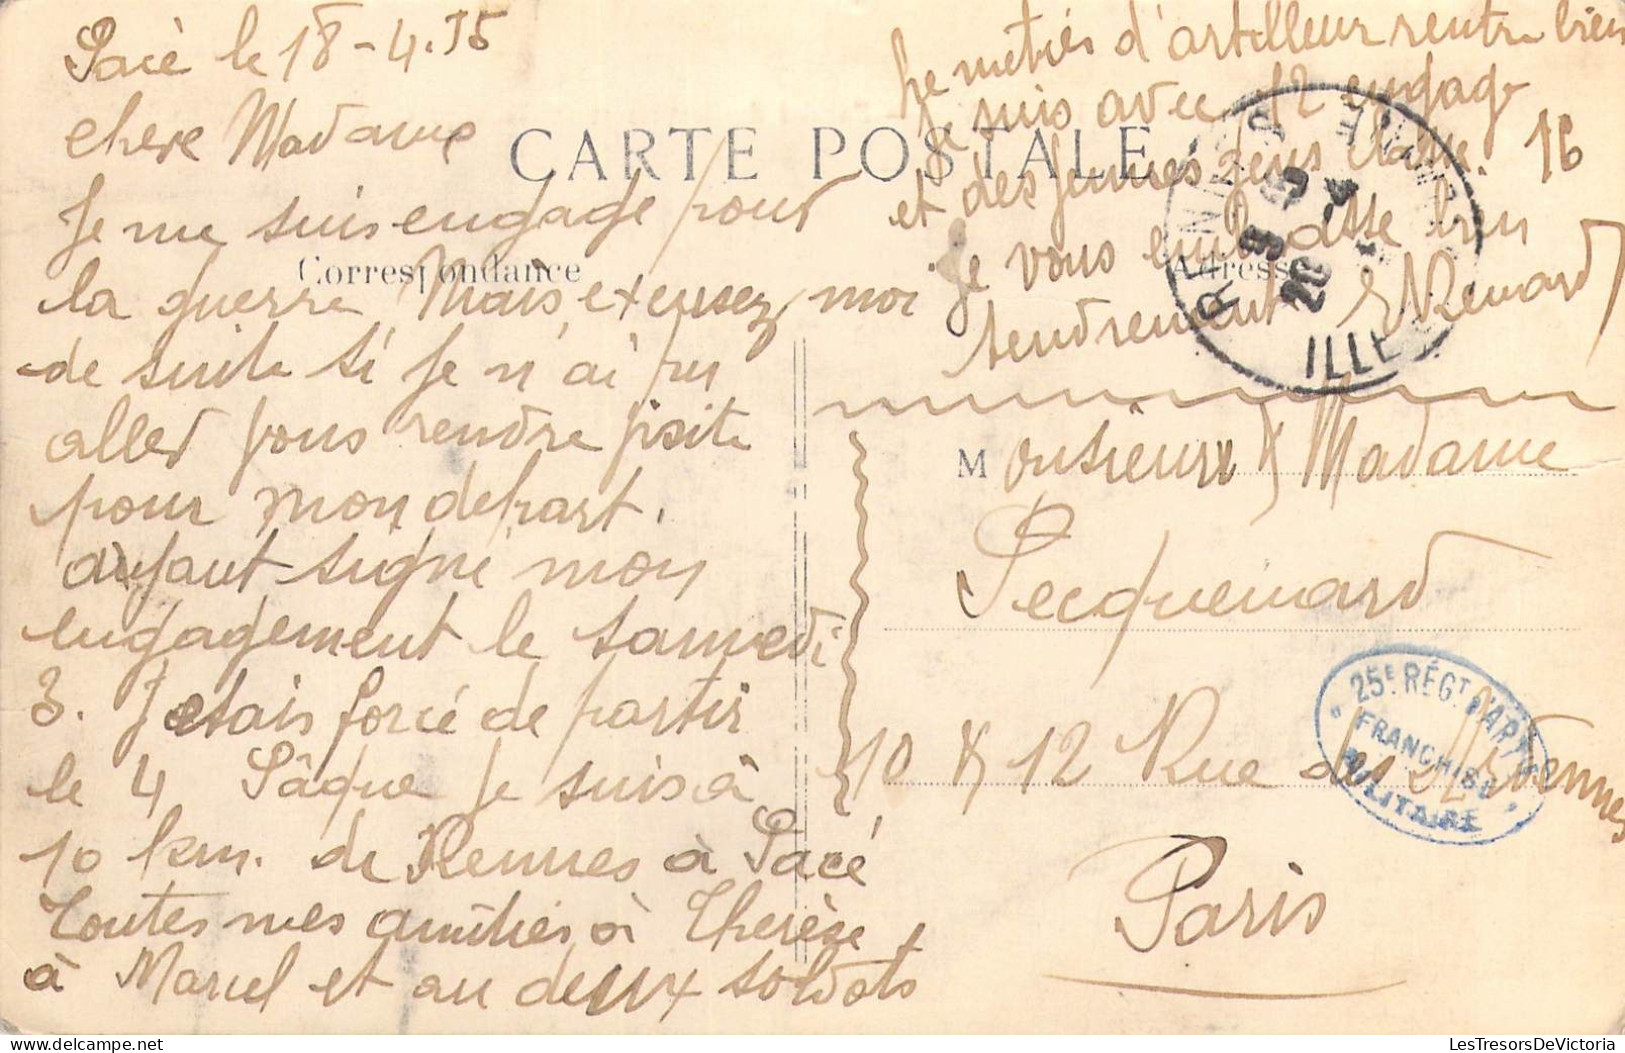 Pacé le 18-4.15
chere Madame
Je me suis engage pour
la guerre Mais excusez moi
de suite si je n'ai pu
aller vous rendre visite
pour mon depart.
ayant signé mon
engagement le samedi
3. J etais forcé de partir
le 4 Pâque je suis à
10 km. de Rennes à Pacé
Toutes mes amitiés à Therèse
à Marcel et au deux soldats
le metier d'artilleur rentre bien
je suis avec 12 engage
et des jeunes gens classe. 16
Je vous embrasse bien
tendrement Renard
CARTE POSTALE
Correspondance
Adresse
ILLE
Monsieur & Madame
Pecquenard
10 & 12 Rue des Ardennes
Paris
25E RÉGT D'ARTIE
FRANCHISE
MILITAIRE
LesTresorsDeVictoria